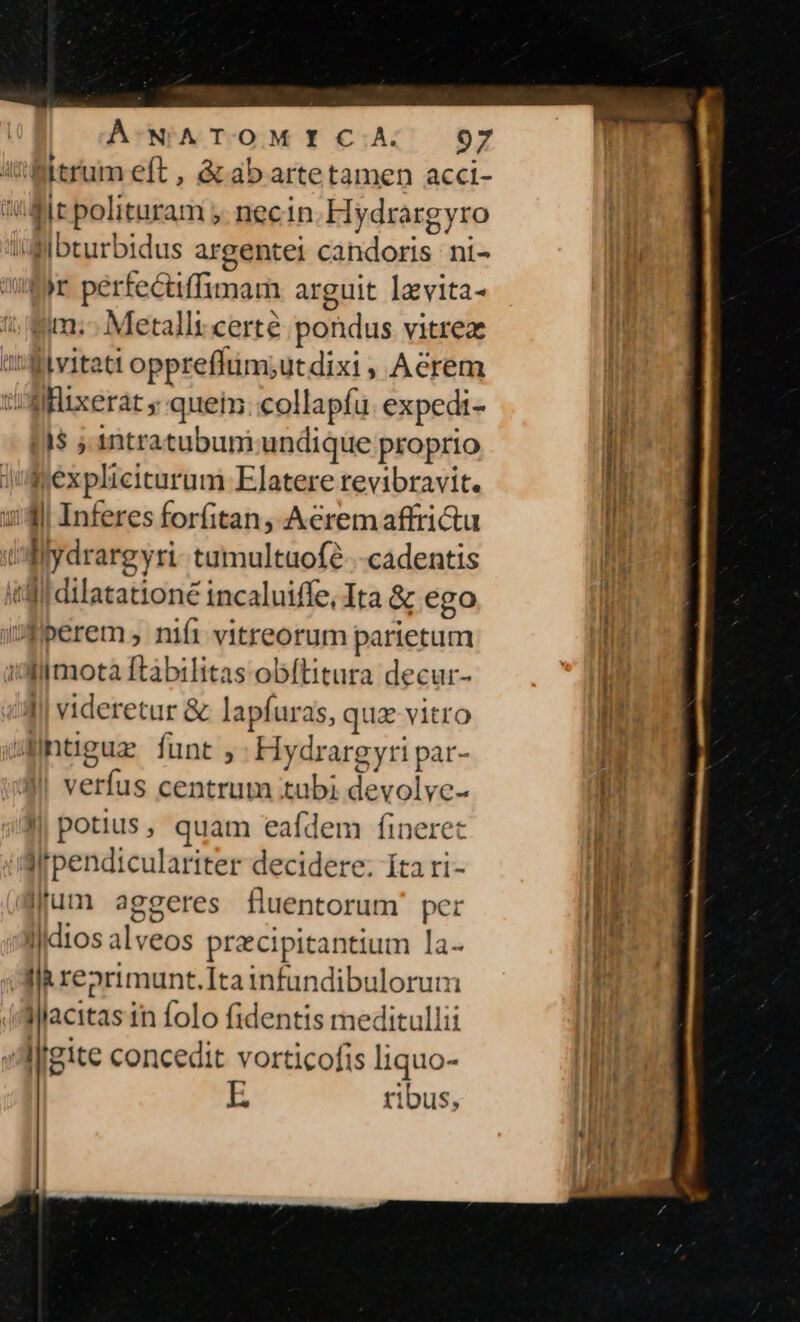 ANATOMICA. 97
eſt, & ab arte tamen acci-
polituram, nec in Hydrargyro
argentei candoris ni-
perfectiſſimam arguit lævita-
Metalli certè pondus vitreæ
oppreſſum, ut dixi, Aërem
quem collapſu expedi-
intra tubum undique proprio
expliciturum Elatere revibravit.
Inferes forſitan, Aërem affrictu
tumultuoſè cadentis
dilatationé incaluiſſe, Ita & ego
niſi vitreorum parietum
ſtabilitas obſtitura decur-
videretur & lapſuras, quæ vitro
ſunt, Hydrargyri par-
verſus centrum tubi devolve-
potius, quam eaſdem ſineret
decidere. Ita ri-
aggeres fluentorum per
alveos præcipitantium la-
reprimunt. Ita infundibulorum
in ſolo fidentis meditullii
concedit vorticoſis liquo-
E ribus,